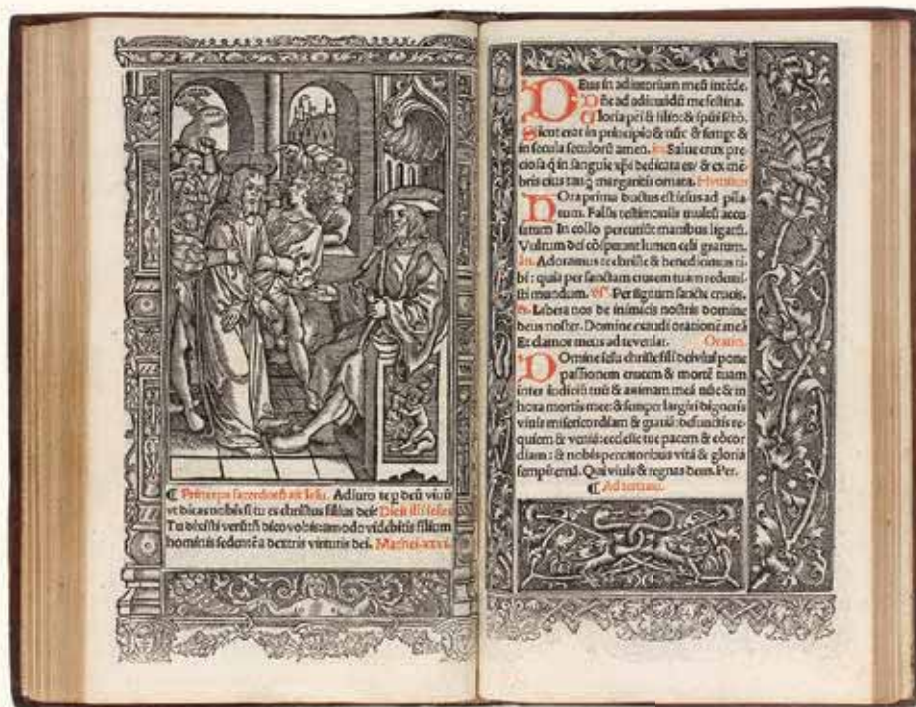 ¶ Princeps sacerdotū ait Iesu. Adiuro te ꝑ deū viuū
vt dicas nobis si tu es christus filius dei: Dicit illi iesus
Tu dixisti verūtū dico vobis: amodo videbitis filium
hominis sedentē a dextris virtutis dei. Mathei. xxvi.
DEus in adiutorium meū intēde.
Dñe ad adiuuādū me festina.
Gloria pri & filio: & spūi scto.
Sicut erat in principio & nūc & semp &
in secula seculorū amen. añ. Salue crux pre
ciosa q̄ in sanguīe xp̄i dedicata es/ & ex mē
bris eius tanq̄ margaritis ornata. Hymnus
HOra prima ductus est iesus ad pila
tum. Falsis testimoniis multū accu
satum In collo percutiūt manibus ligatū.
Vultum dei cōspuunt lumen celi gratum.
Añ. Adoramus te christe & benedicimus ti
bi: quia per sanctam crucem tuam redemi
sti mundum. ℣. Per signum sancte crucis.
℟. Libera nos de inimicis nostris domine
deus noster. Domine exaudi orationē meā
Et clamor meus ad te veniat. Oratio.
DOmine iesu christe fili dei viui pone
passionem crucem & mortē tuam
inter iudiciū tuū & animam meā nūc & in
hora mortis mee: & semper largiri digneris
viuis misericordiam & gratiā: defunctis re
quiem & veniā: ecclesie tue pacem & cōcor
diam: & nobis peccatoribus vitā & gloriā
sempiternā. Qui viuis & regnas deus. Per.
¶ Ad tertiam.